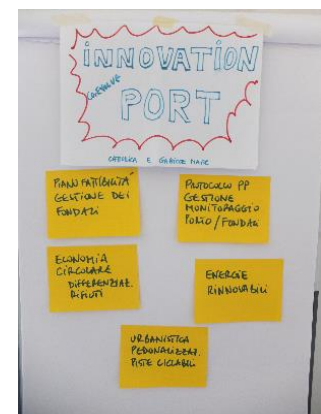 INNOVATION
PORT
CATTOLICA E GABICCE MARE
PIANO FATTIBILITÀ
GESTIONE DEI
FONDALI
PROTOCOLLO PP
GESTIONE
MONITORAGGIO
PORTO/FONDALI
ECONOMIA
CIRCOLARE
DIFFERENZIAZ.
RIFIUTI
ENERGIE
RINNOVABILI
URBANISTICA
PEDONALIZZAZ.
PISTE CICLABILI